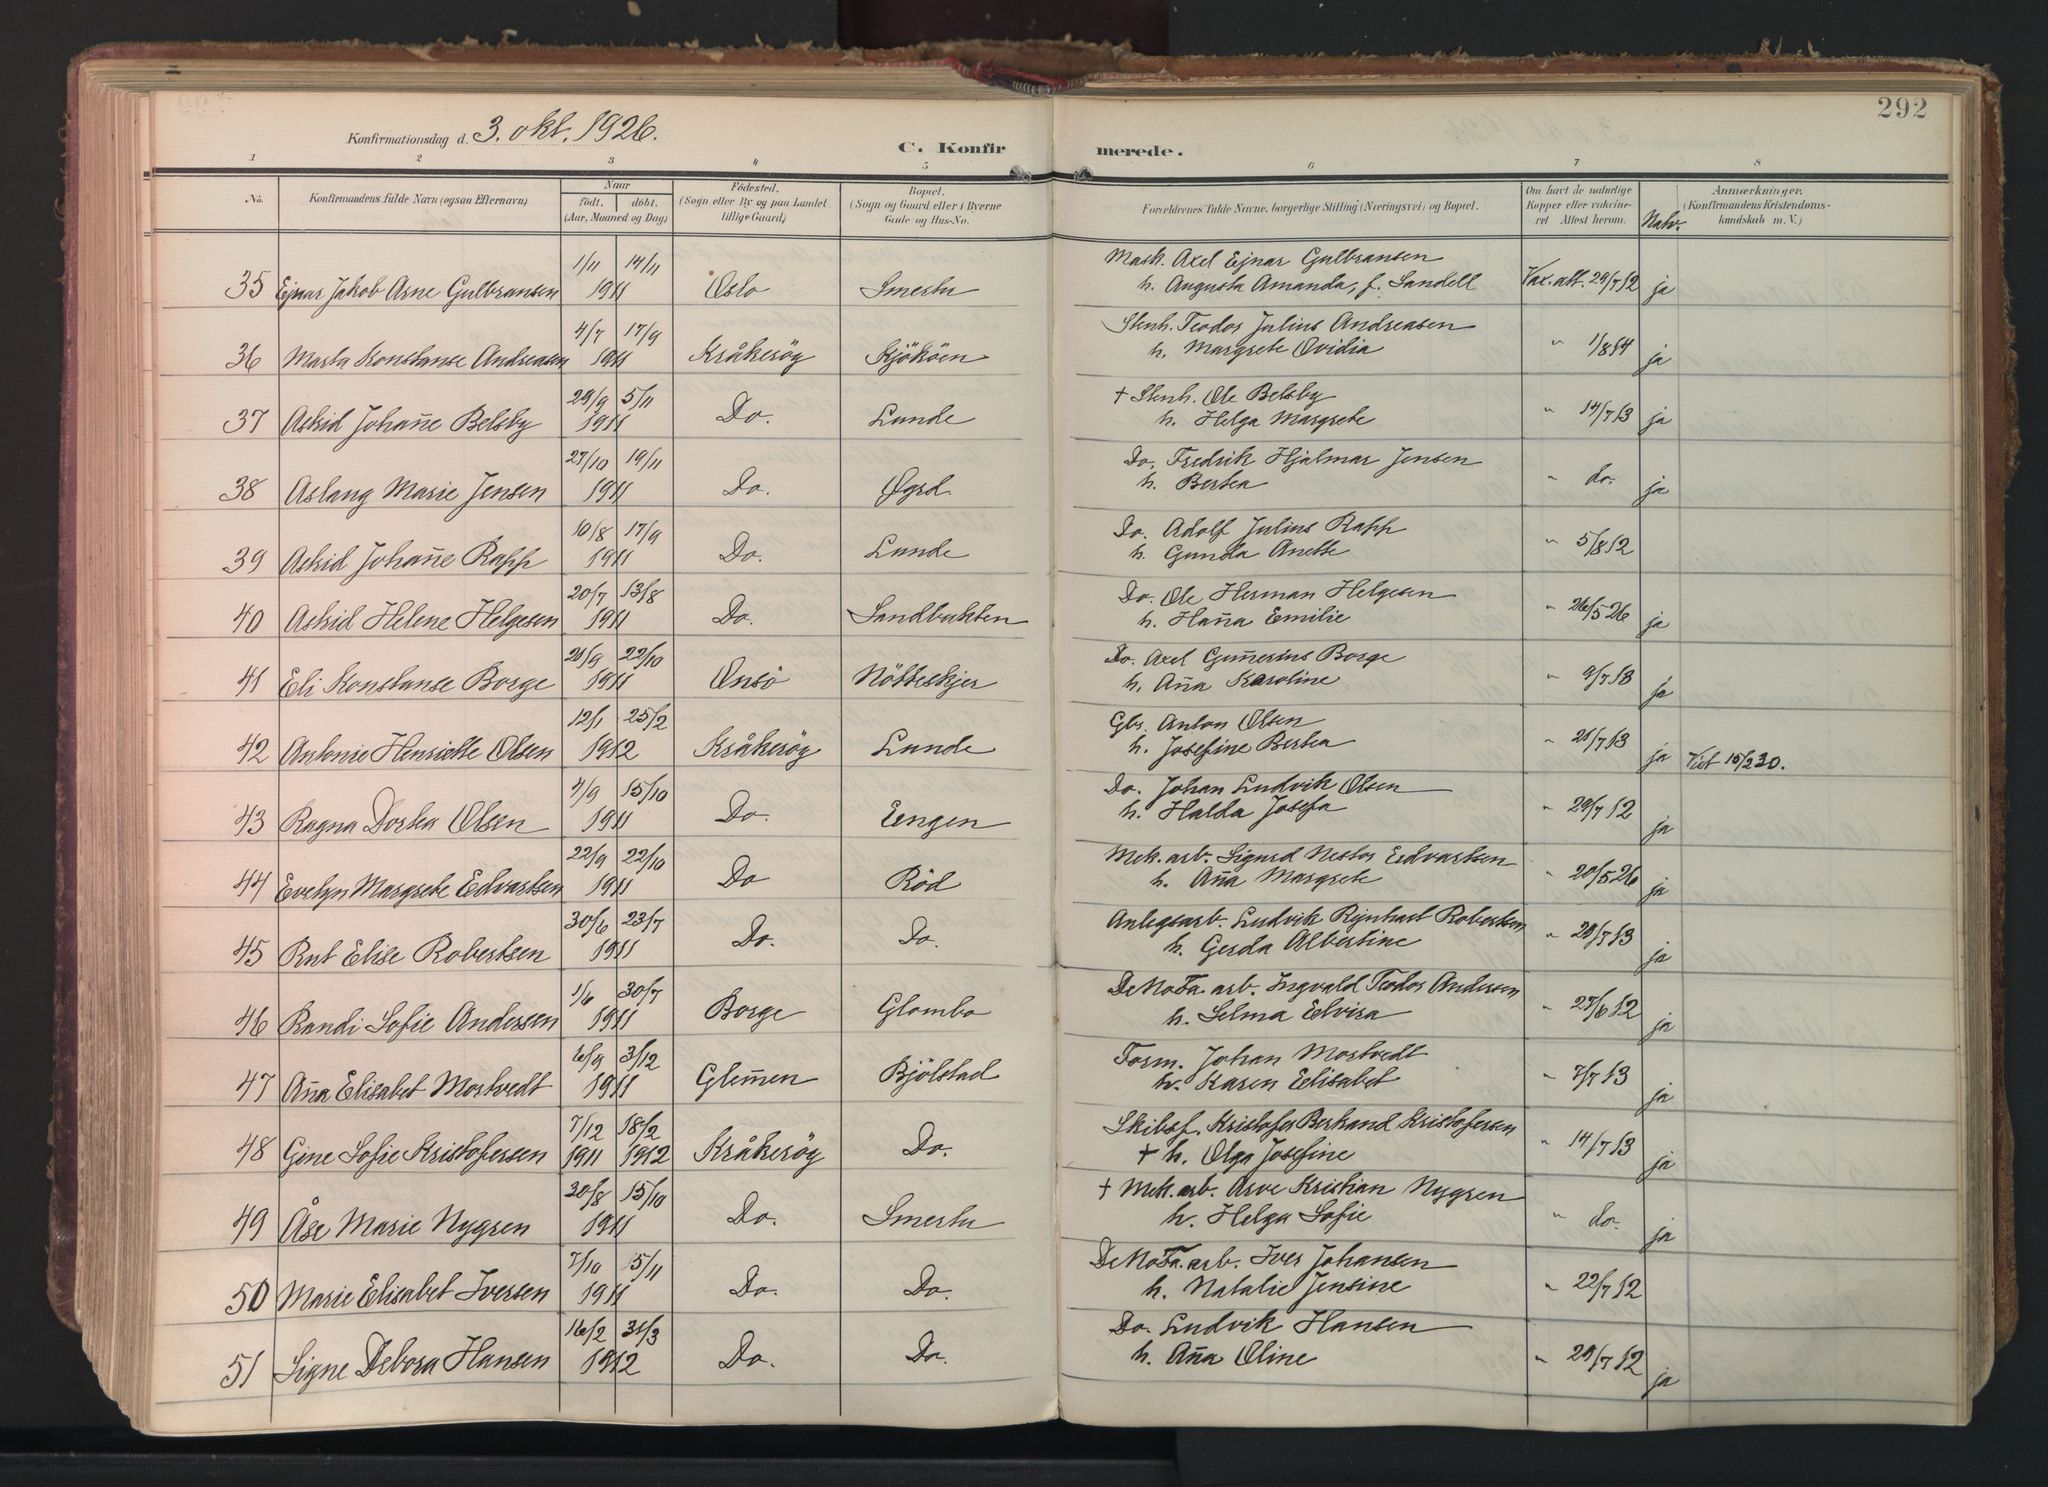 292
Konfirmationsdag d. 3. okt. 1926.
C. Konfirmerede.
1 2 3 4 5 6 7 8
No. Konfirmandens fulde Navn (ogsaa Efternavn) Naar født. døbt. (Aar, Maaned og Dag) Fødested. (Sogn eller By og paa Landet tillige Gaard) Bopæl. (Sogn og Gaard eller i Byerne Gade og Hus-No. Forældrenes fulde Navne, borgerlige Stilling (Næringsvei) og Bopæl. Om havt de naturlige Kopper eller vaccineret Attest herom. Natv. Anmærkninger. (Konfirmandens Kristendomskundskab m. V.)
1/11 14/11 Mask. Axel Ejnar Gulbransen
35 Ejnar Jakob Arne Gulbransen 1911 Oslo Smertu h. Augusta Amanda, f. Sandell Vax. att. 29/7 12 ja
4/7 17/9 Stenh. Teodor Julius Andreasen
36 Marta Konstanse Andreasen 1911 Kråkerøy Kjøkøen h. Margrete Ovidia " 1/8 14 ja
29/9 5/11 + Stenh. Ole Belsby
37 Astrid Johan̄e Belsby 1911 Do. Lunde h. Helga Margrete " 14/7 13 ja
27/10 19/11 Do. Fredrik Hjalmar Jensen
38 Aslaug Marie Jensen 1911 Do. Øgrd h. Bertea " do. ja
10/8 17/9 Do. Adolf Julius Rapp
39 Astrid Johan̄e Rapp 1911 Do. Lunde h. Gunda Anette " 5/8 12
20/7 13/8 Do. Ole Herman Helgesen
40 Astrid Helene Helgesen 1911 Do. Sandbukten h. Han̄a Emilie " 26/5 26 ja
21/9 22/10 Do. Axel Gum̄erius Borge
41 Eli Konstanse Borge 1911 Onsø Nøtteskjer h. An̄a Karoline " 9/7 18 ja
12/1 25/2 Gbr. Anton Olsen
42 Antonie Henriette Olsen 1912 Kråkerøy Lunde h. Josefine Bertea " 21/7 13 ja Viet 15/2 30.
4/9 15/10 Do. Johan Ludvik Olsen
43 Ragna Dortea Olsen 1911 Do. Engen h. Halda Josefa " 29/7 12 ja
22/9 22/10 Mek. arb. Sigurd Nestor Edvartsen
44 Evelyn Margrete Edvartsen 1911 Do Rød h. An̄a Margrete " 20/5 26 ja
30/6 23/7 Anlegsarb. Ludvik Rejnhart Robertsen
45 Rut Elise Robertsen 1911 Do. Do. h. Gerda Albertine " 13 ja
1/6 30/7 DeNoFa. arb. Ingvald Teodor Andersen
46 Randi Sofie Andersen 1911 Borge Glombo h. Selma Elvira " 27/6 12 ja
6/9 3/12 Form. Johan Mostvedt
47 An̄a Elisabet Mostvedt 1911 Glem̄en Bjølstad h. Karen Elisabet " 7/7 13 ja
7/12 18/2 Skibsf. Kristofer Bertrand Kristofersen
48 Gine Sofie Kristofersen 1911 1912 Kråkerøy Do. + h. Olga Josefine " 14/7 13 ja
30/8 15/10 + Mek. arb. Arve Kristian Nygren
49 Åse Marie Nygren 1911 Do. Smertu h. Helga Sofie " do. ja
7/10 5/11 DeNoFa. arb. Iver Johansen
50 Marie Elisabet Iversen 1911 Do. Do. h. Natalie Jensine " 22/7 12
16/2 31/3 Do. Ludvik Hansen
51 Signe Debora Hansen 1912 Do. Do. h. An̄a Oline " 29/7 12 ja